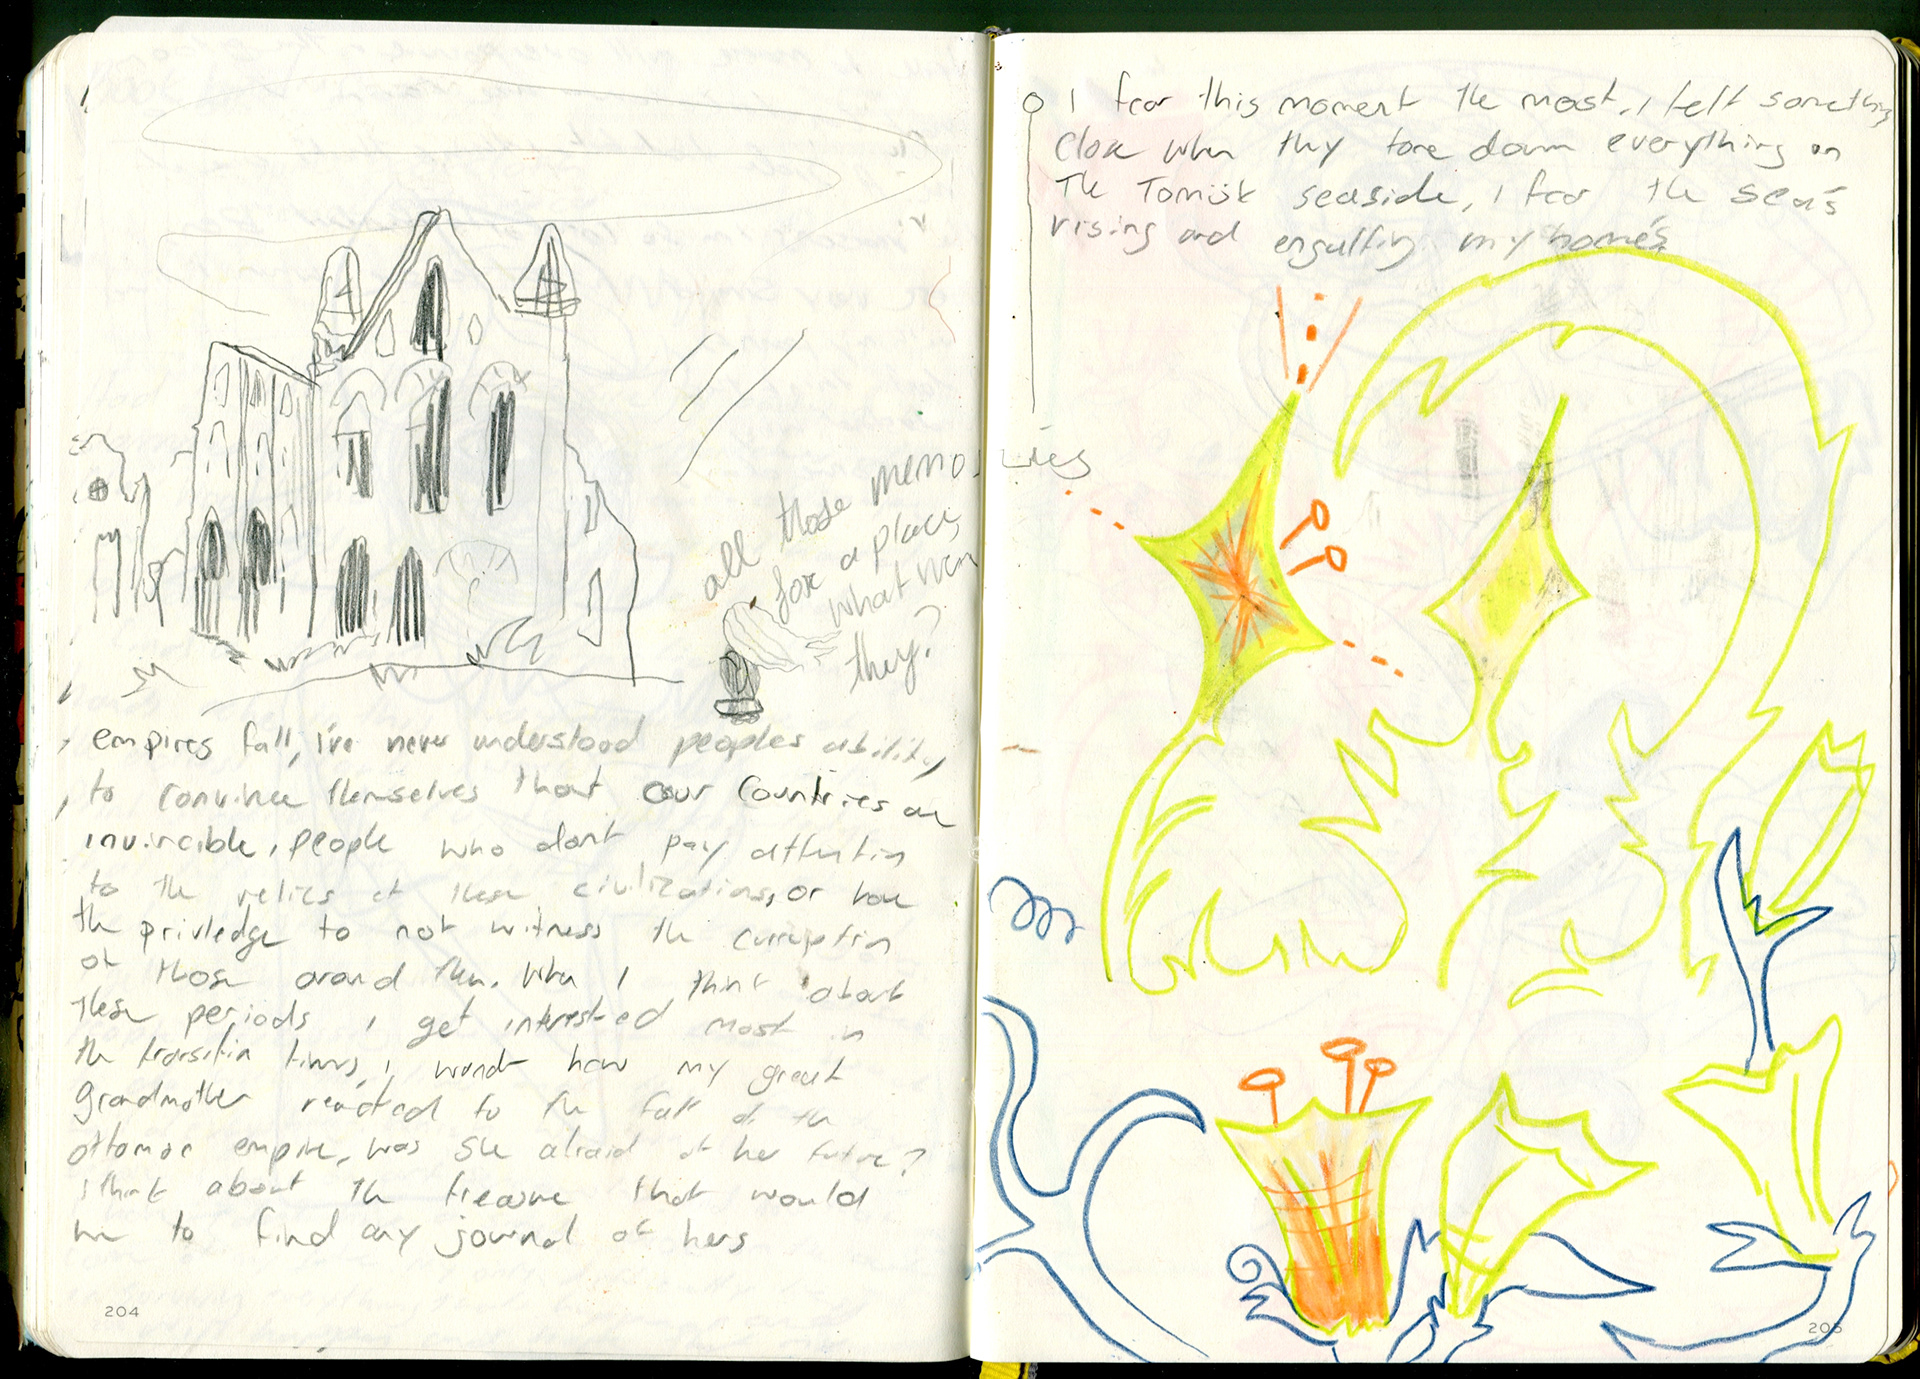 all those memories
for a place,
what were
they?
empires fall, i've never understood peoples ability,
to convince themselves that our countries are
invincible, people who dont pay attention
to the relics of these civilizations, or have
the priviledge to not witness the curruption
of those around them. When I think about
these periods I get interested most in
the transition times, I wonder how my great
grandmother reacted to the fall of the
ottoman empire, was she afraid of her future?
I think about the treasure that would
be to find any journal of hers
204
I fear this moment the most. I felt something
close when they tore down everything on
the seaside, I fear the sea's
rising and engulfing my homes
205